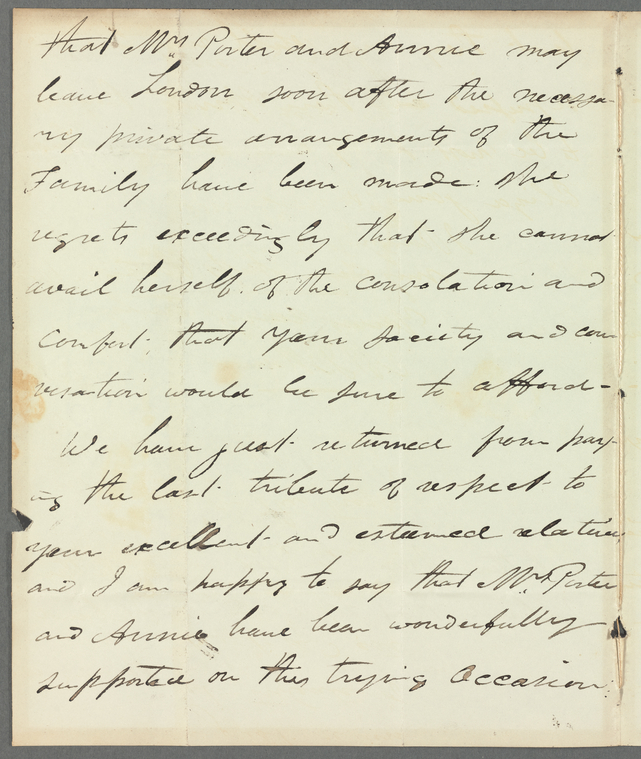 that Mrs. Porter and Annie may
leave London soon after the necessa-
ry private arrangements of the
Family have been made: she
regrets exceedingly that she cannot
avail herself of the consolation and
Comfort, that your society and con
versation would be sure to afford -
We have just returned from pay-
ing the last tribute of respect to
your excellent and esteemed relative
and I am happy to say that Mrs. Porter
and Annie have been wonderfully
supported on this trying Occasion.